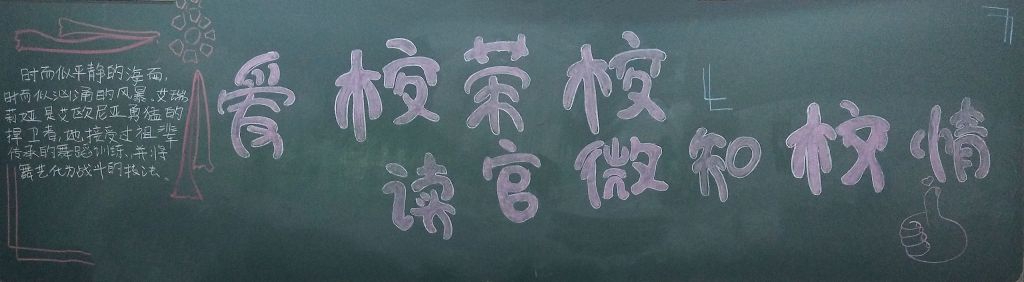 时而似平静的海面,
时而似汹涌的风暴、艾瑞
莉娅是艾欧尼亚勇猛的
捍卫者,她接受过祖辈
传承的舞蹈训练、并将
舞艺化为战斗的技法、
爱校荣校
读官微知校情